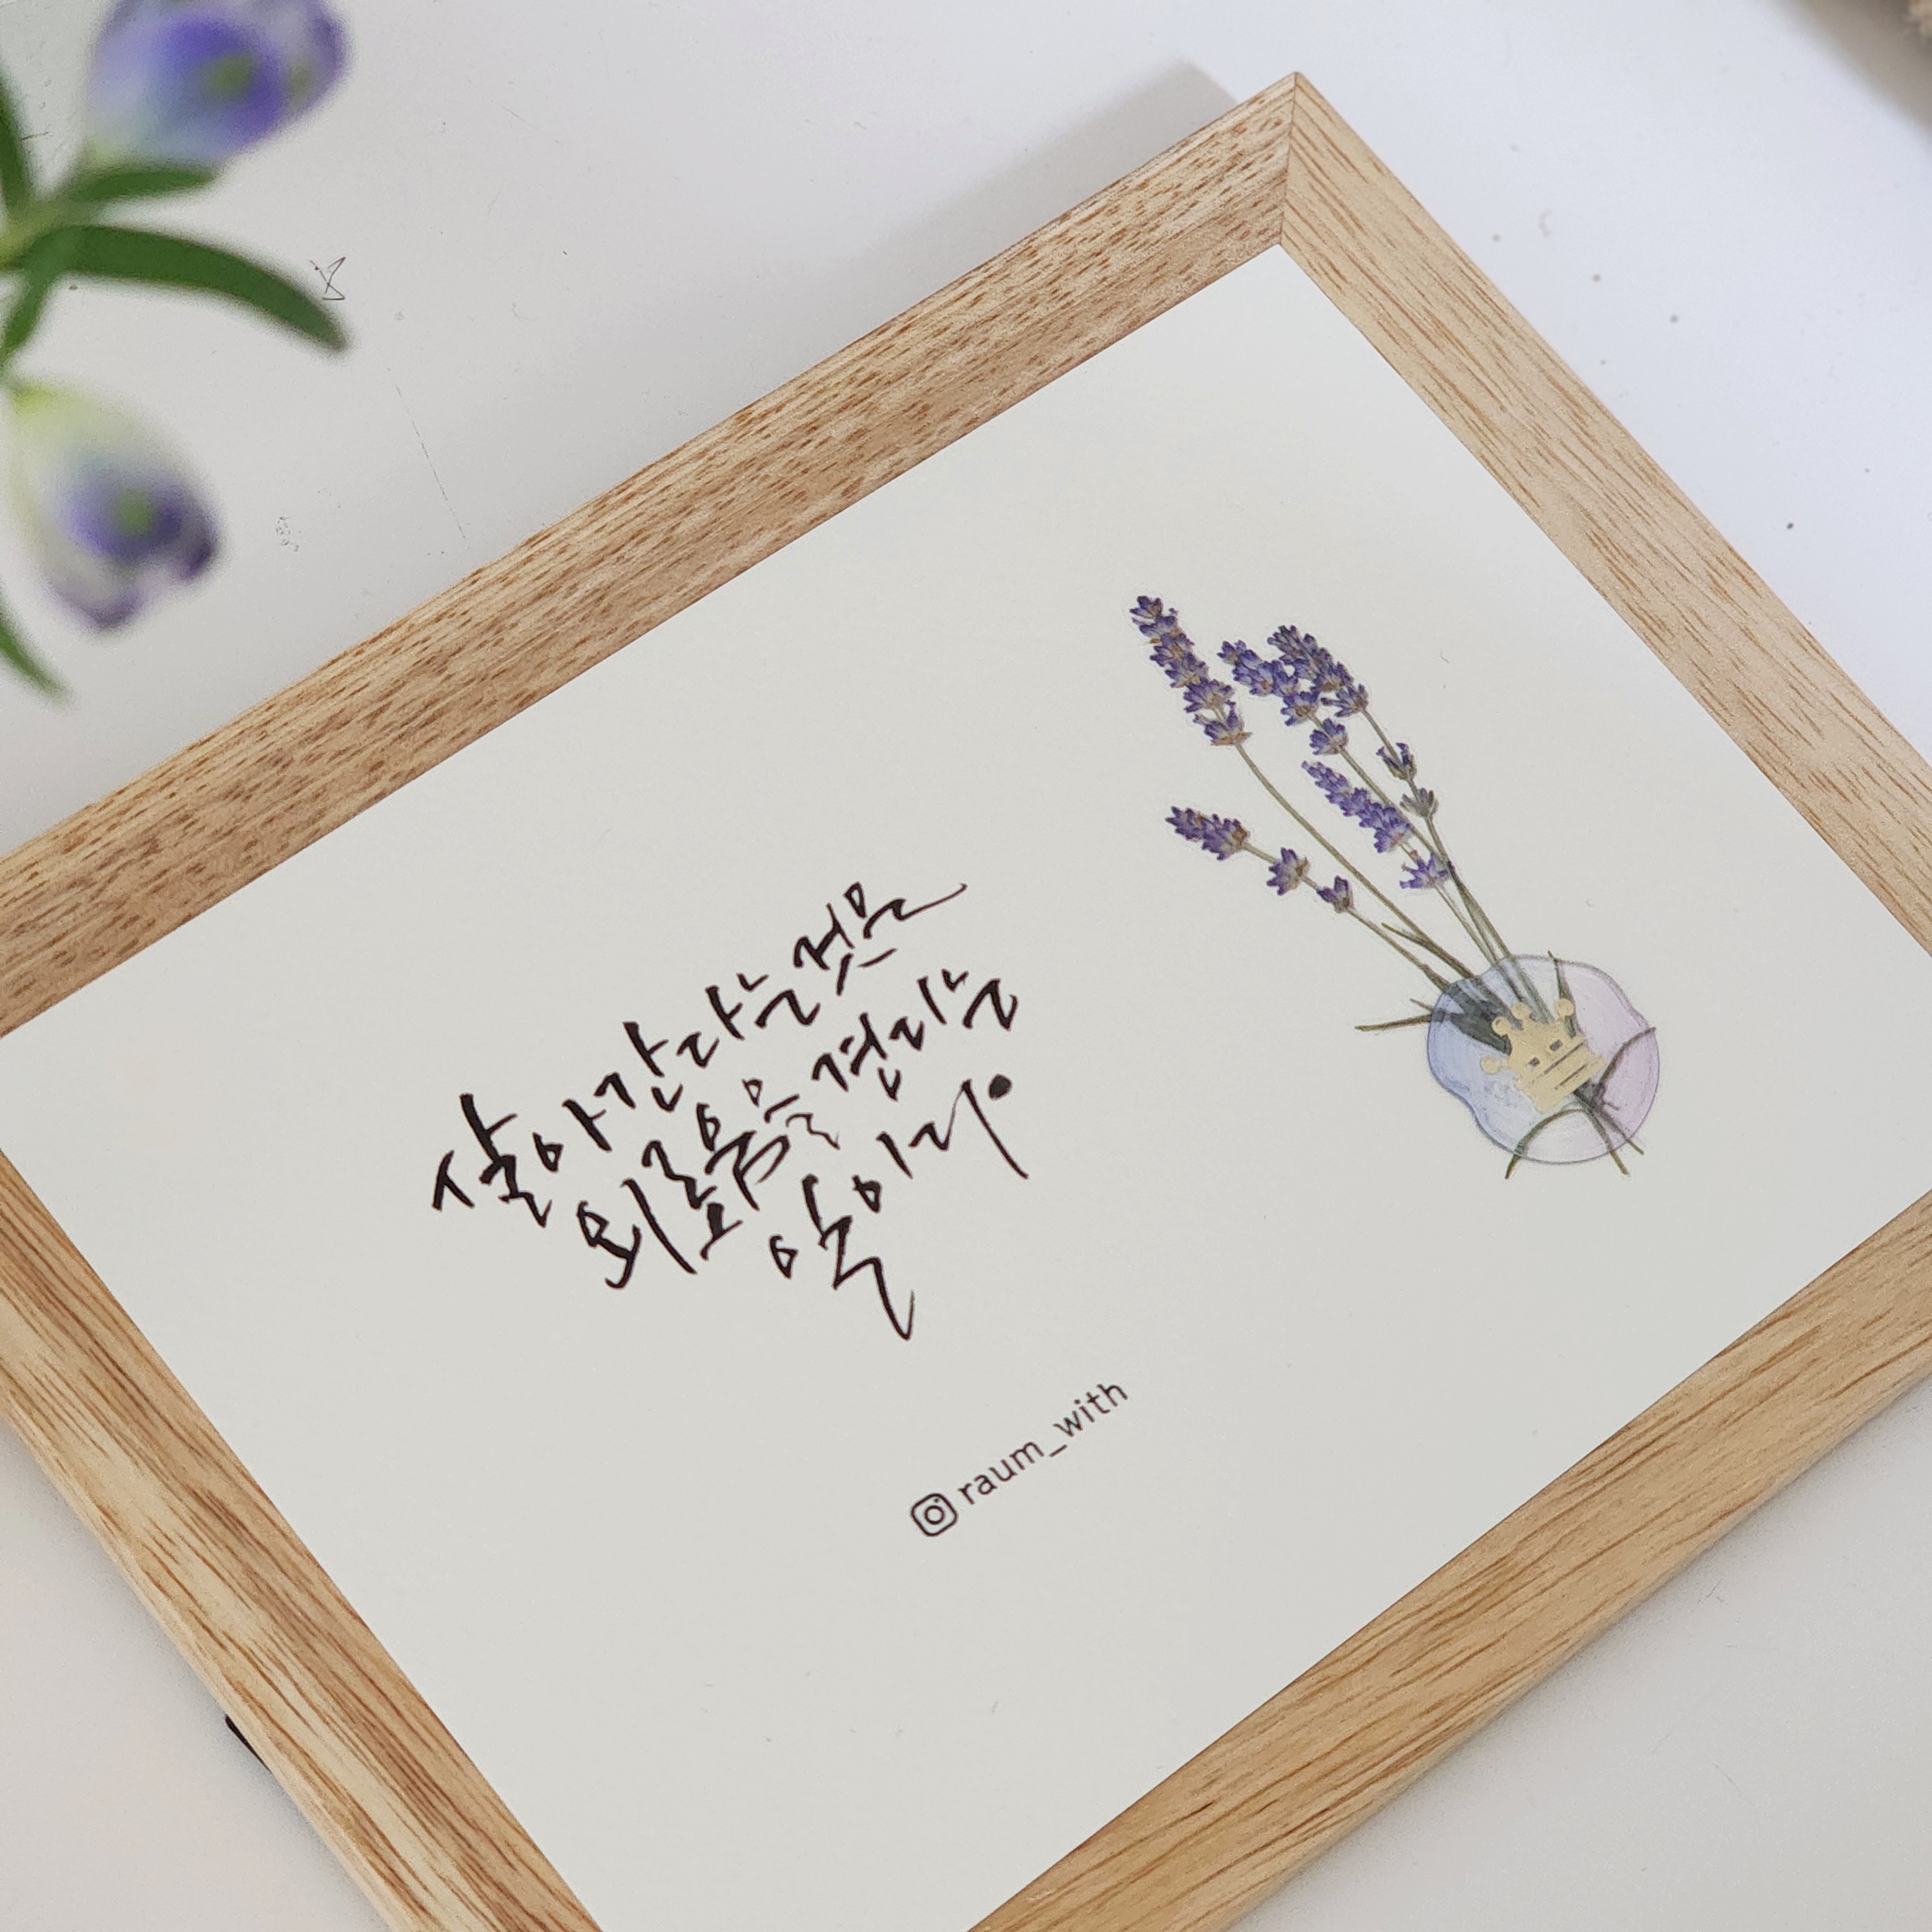 살아간다는 것은
외로움을 견디는
일이다
raum_with